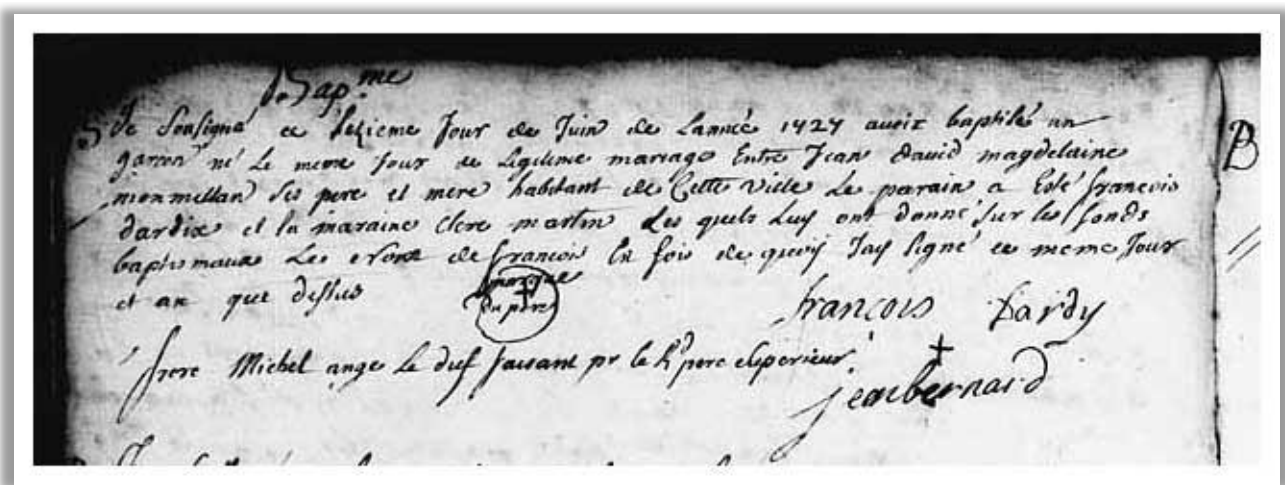 Bap.me
Je Sousigné ce sezieme Jour de Juin de Lannee 1727 avoir baptisé un
garcon né Le meme Jour de Legitime mariage Entre Jean david magdelaine
monmellan ses pere et mere habitant de Cette ville Le parain a Esté francois
dardix et la maraine Clere martin Les quels Luy ont donné sur les fonds
baptismaux Le de francois En fois de quoy Jay signé ce meme Jour
et an que dessus
marque
du pere
francois Dardy
frere Michel ange faisant pr le pere superieur
jean bernard
B